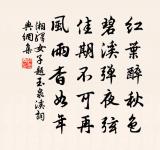 紅葉醉秋色
碧溪彈夜弦
佳期不可再
風雨杳如年
湘驛女子題玉泉溪詞
典綱集